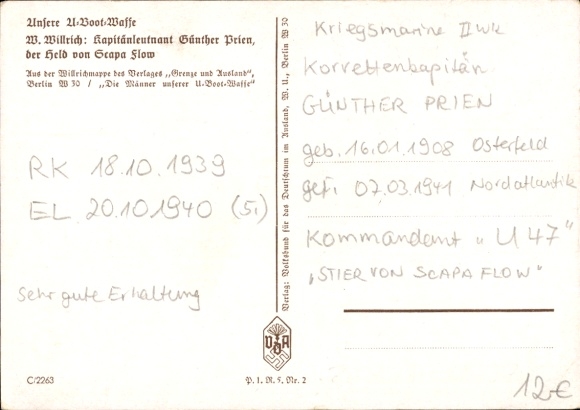 Unsere U-Boot-Waffe
W. Willrich: Kapitänleutnant Günther Prien,
der Held von Scapa Flow
Aus der Willrichmappe des Verlages „Grenze und Ausland",
Berlin W 30 / „Die Männer unserer U-Boot-Waffe"
RK 18.10.1939
EL 20.10.1940 (5.)
Sehr gute Erhaltung
C/2263
Verlag: Volksbund für das Deutschtum im Ausland, W. U., Berlin W 30
VDA
P. I. R. S. Nr. 2
Kriegsmarine II WK
Korvettenkapitän
GÜNTHER PRIEN
geb. 16.01.1908 Osterfeld
gef. 07.03.1941 Nordatlantik
Kommandant „U 47"
„STIER VON SCAPA FLOW"
12€